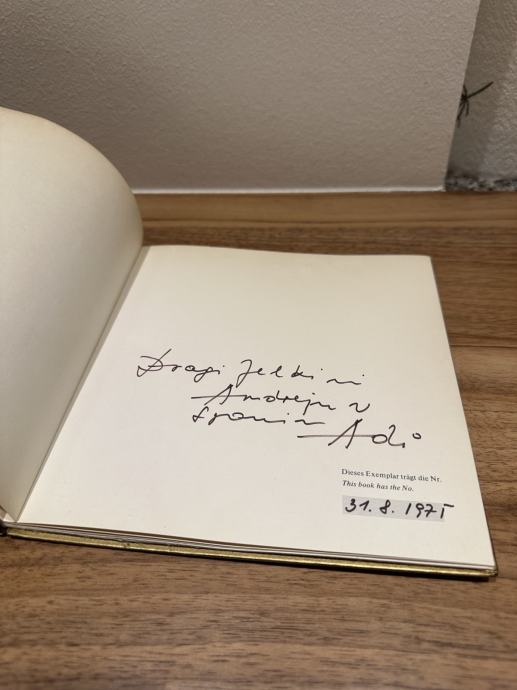 Dragi Jelki in
Andreju v
spomin Adi
Dieses Exemplar trägt die Nr.
This book has the No.
31. 8. 1975